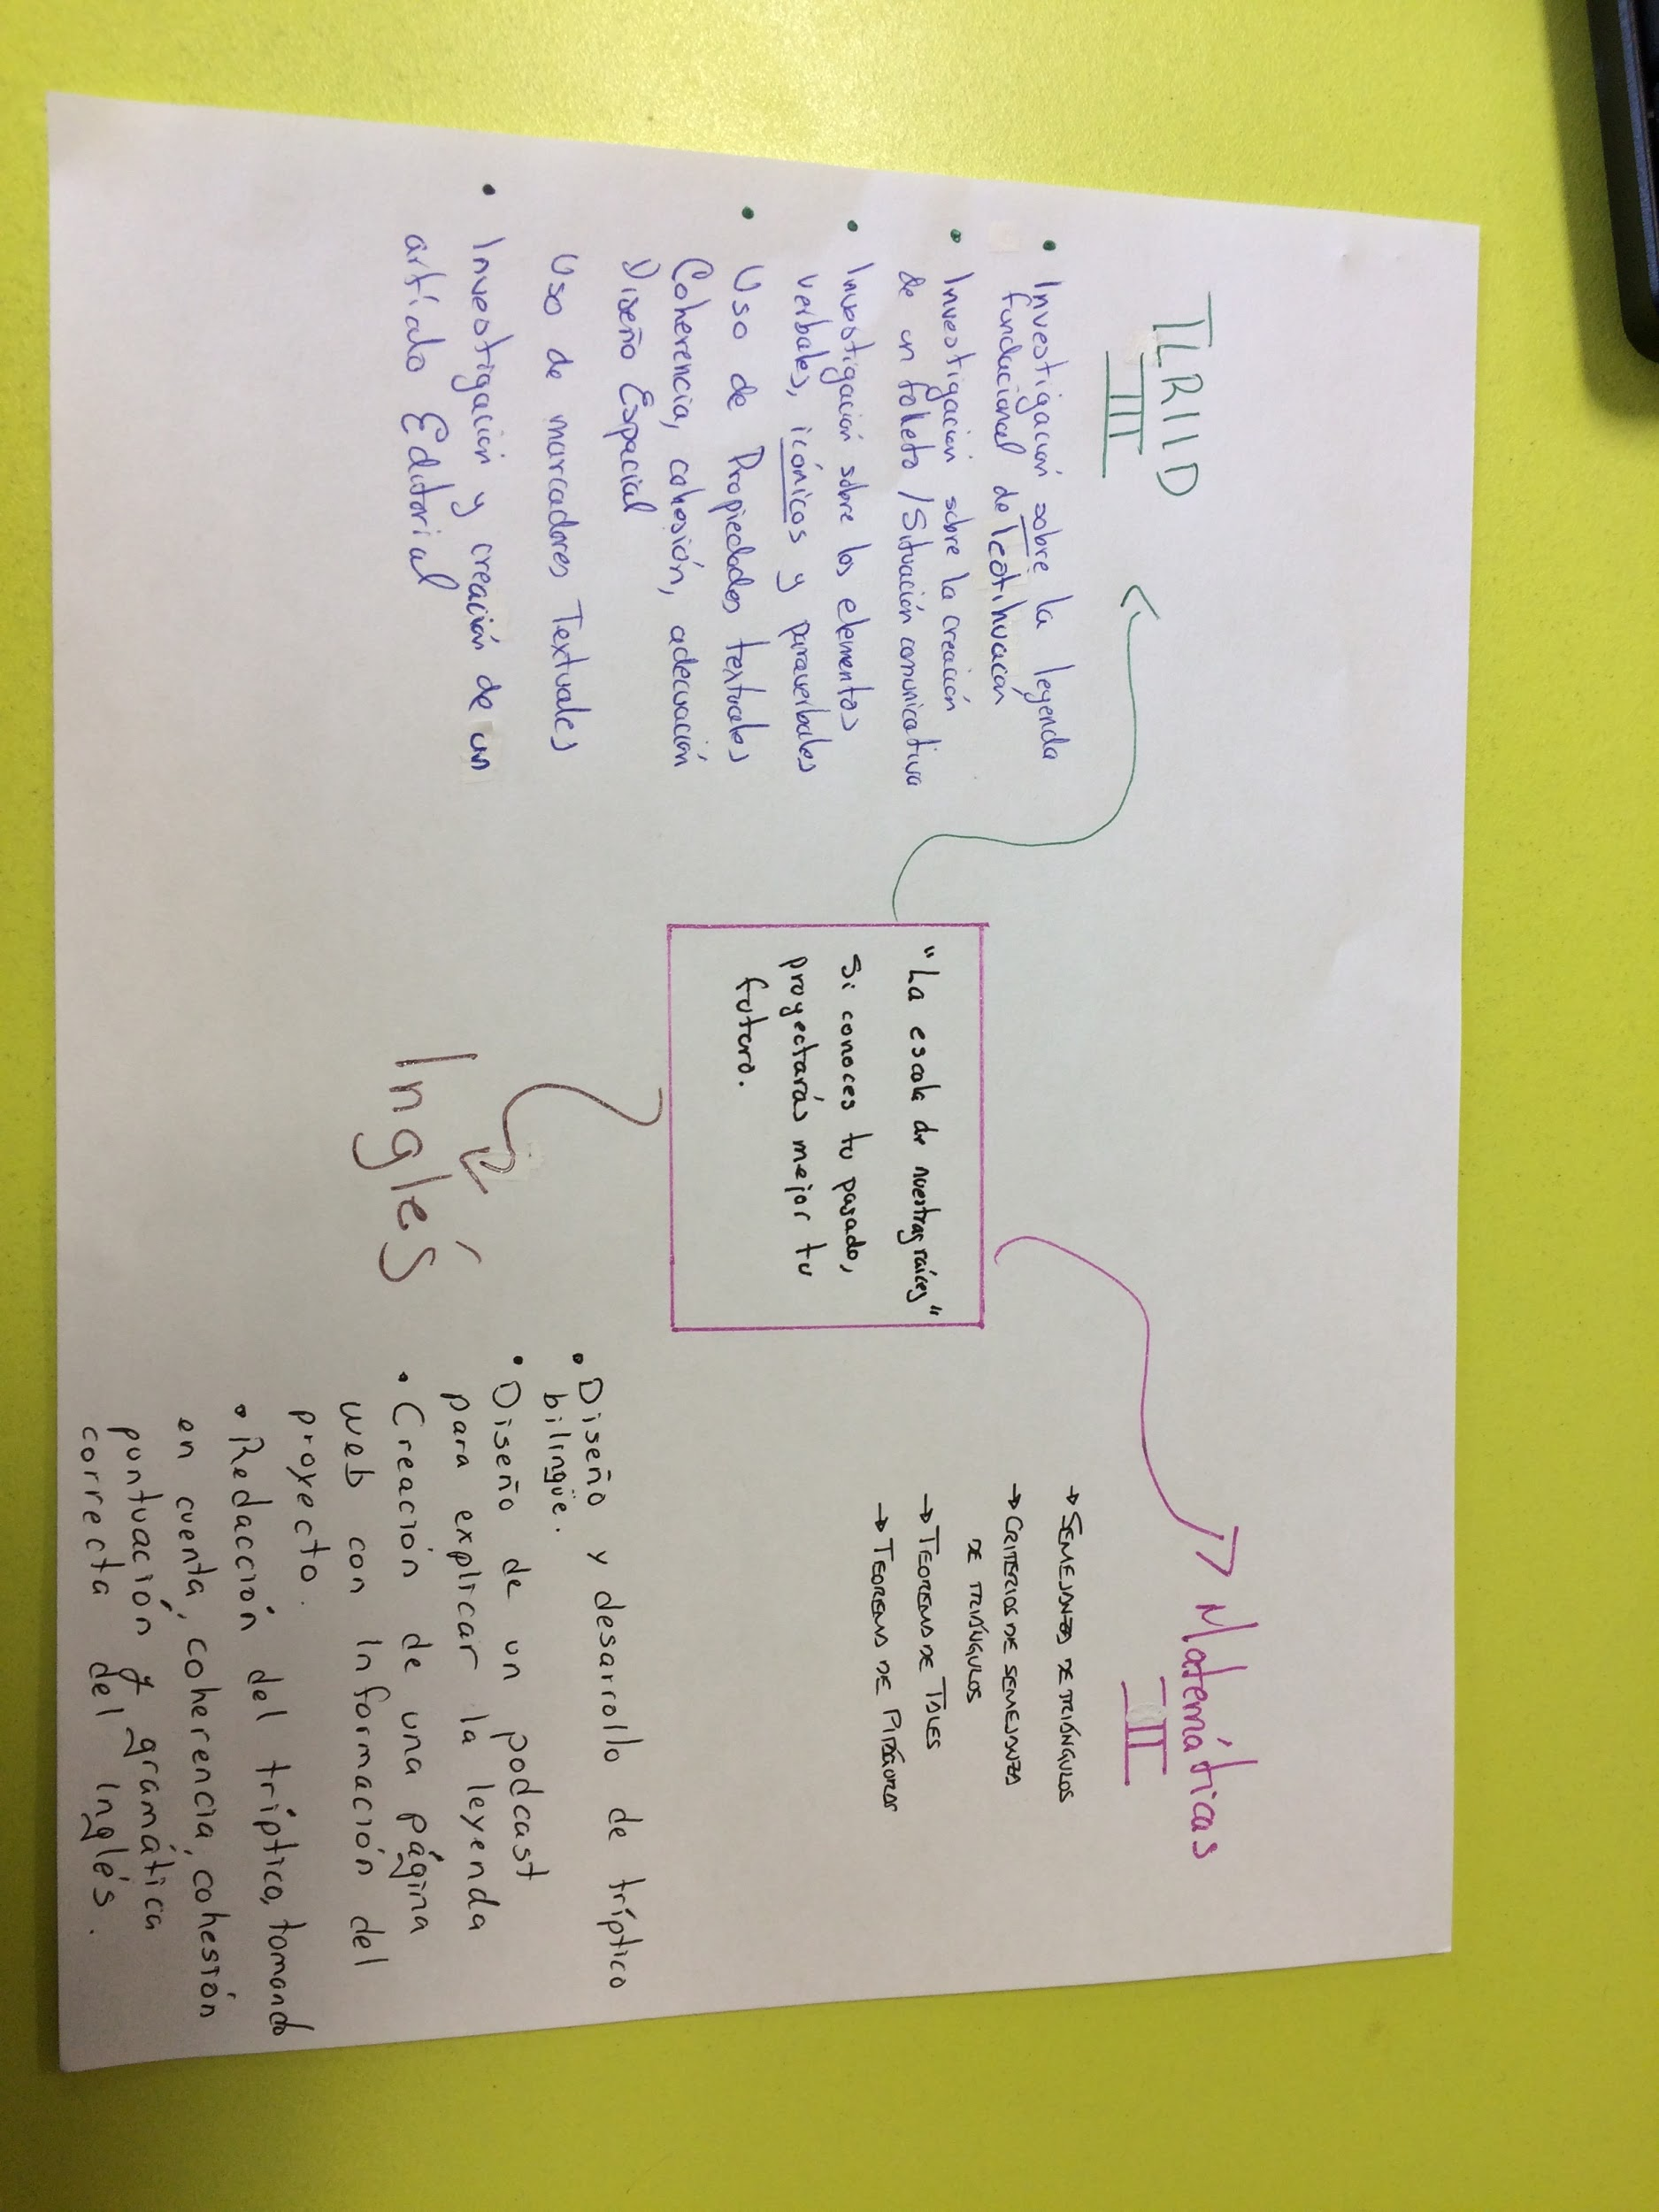 TLRIID
III
• Investigación sobre la leyenda
fundacional de Teotihuacán
• Investigación sobre la creación
de un folleto / Situación comunicativa
• Investigación sobre los elementos
verbales, icónicos y paraverbales
• Uso de Propiedades textuales
Coherencia, cohesión, adecuación
Diseño Espacial
Uso de marcadores Textuales
• Investigación y creación de un
artículo Editorial
"La escala de nuestras raíces"
Si conoces tu pasado,
proyectarás mejor tu
futuro.
Matemáticas
III
→ SEMEJANZA DE TRIÁNGULOS
→ CRITERIOS DE SEMEJANZA
DE TRIÁNGULOS
→ TEOREMA DE TALES
→ TEOREMA DE PITÁGORAS
Inglés
• Diseño y desarrollo de tríptico
bilingüe.
• Diseño de un podcast
para explicar la leyenda
• Creación de una página
web con información del
proyecto.
• Redacción del tríptico, tomando
en cuenta, coherencia, cohesión
puntuación y gramática
correcta del Inglés.